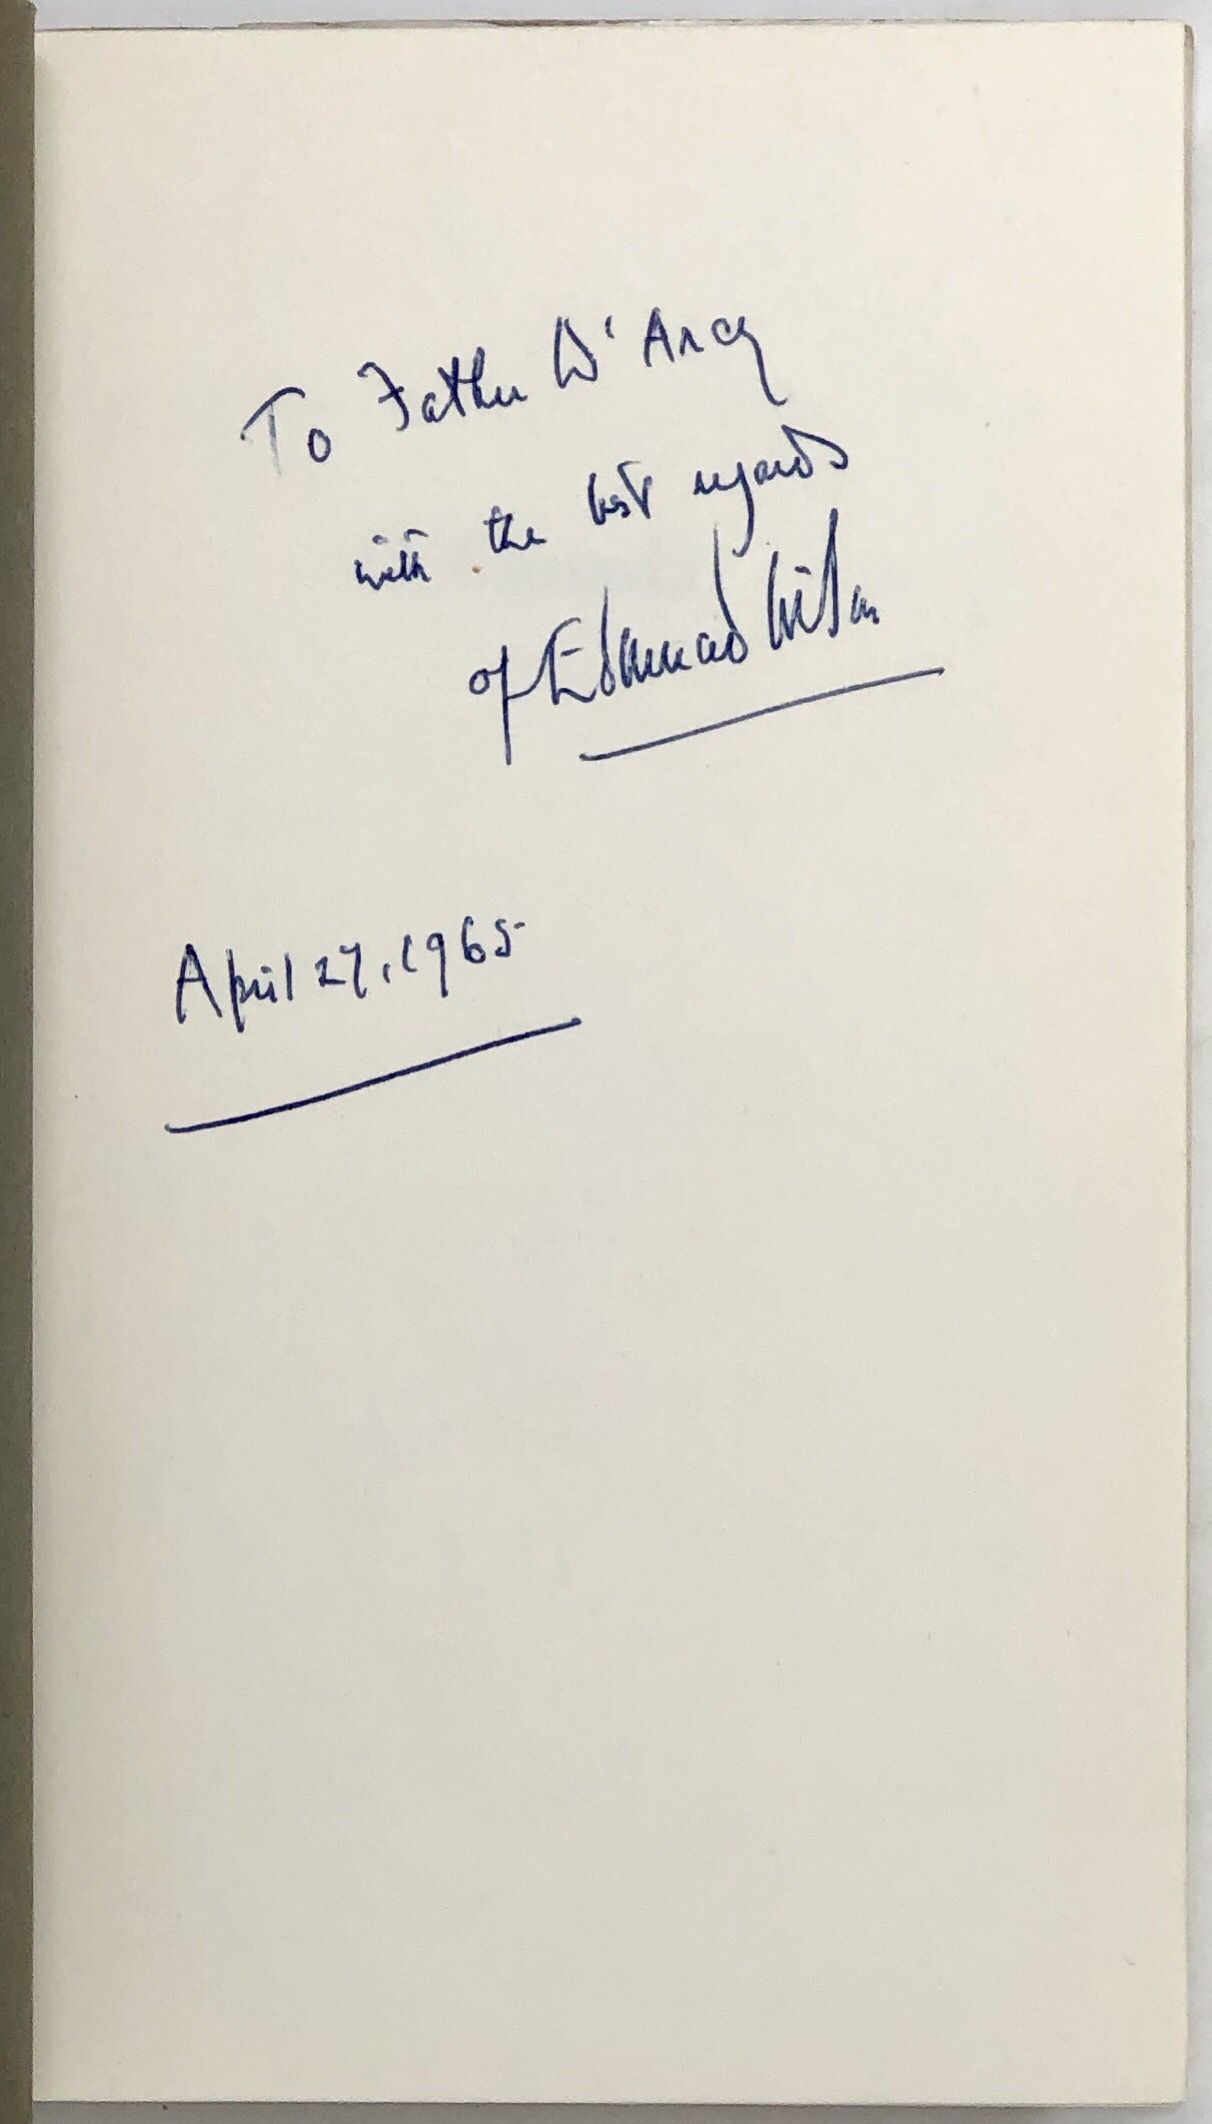 To Father D'Arcy
with the best regards
of Edmund Wilson
April 27, 1965